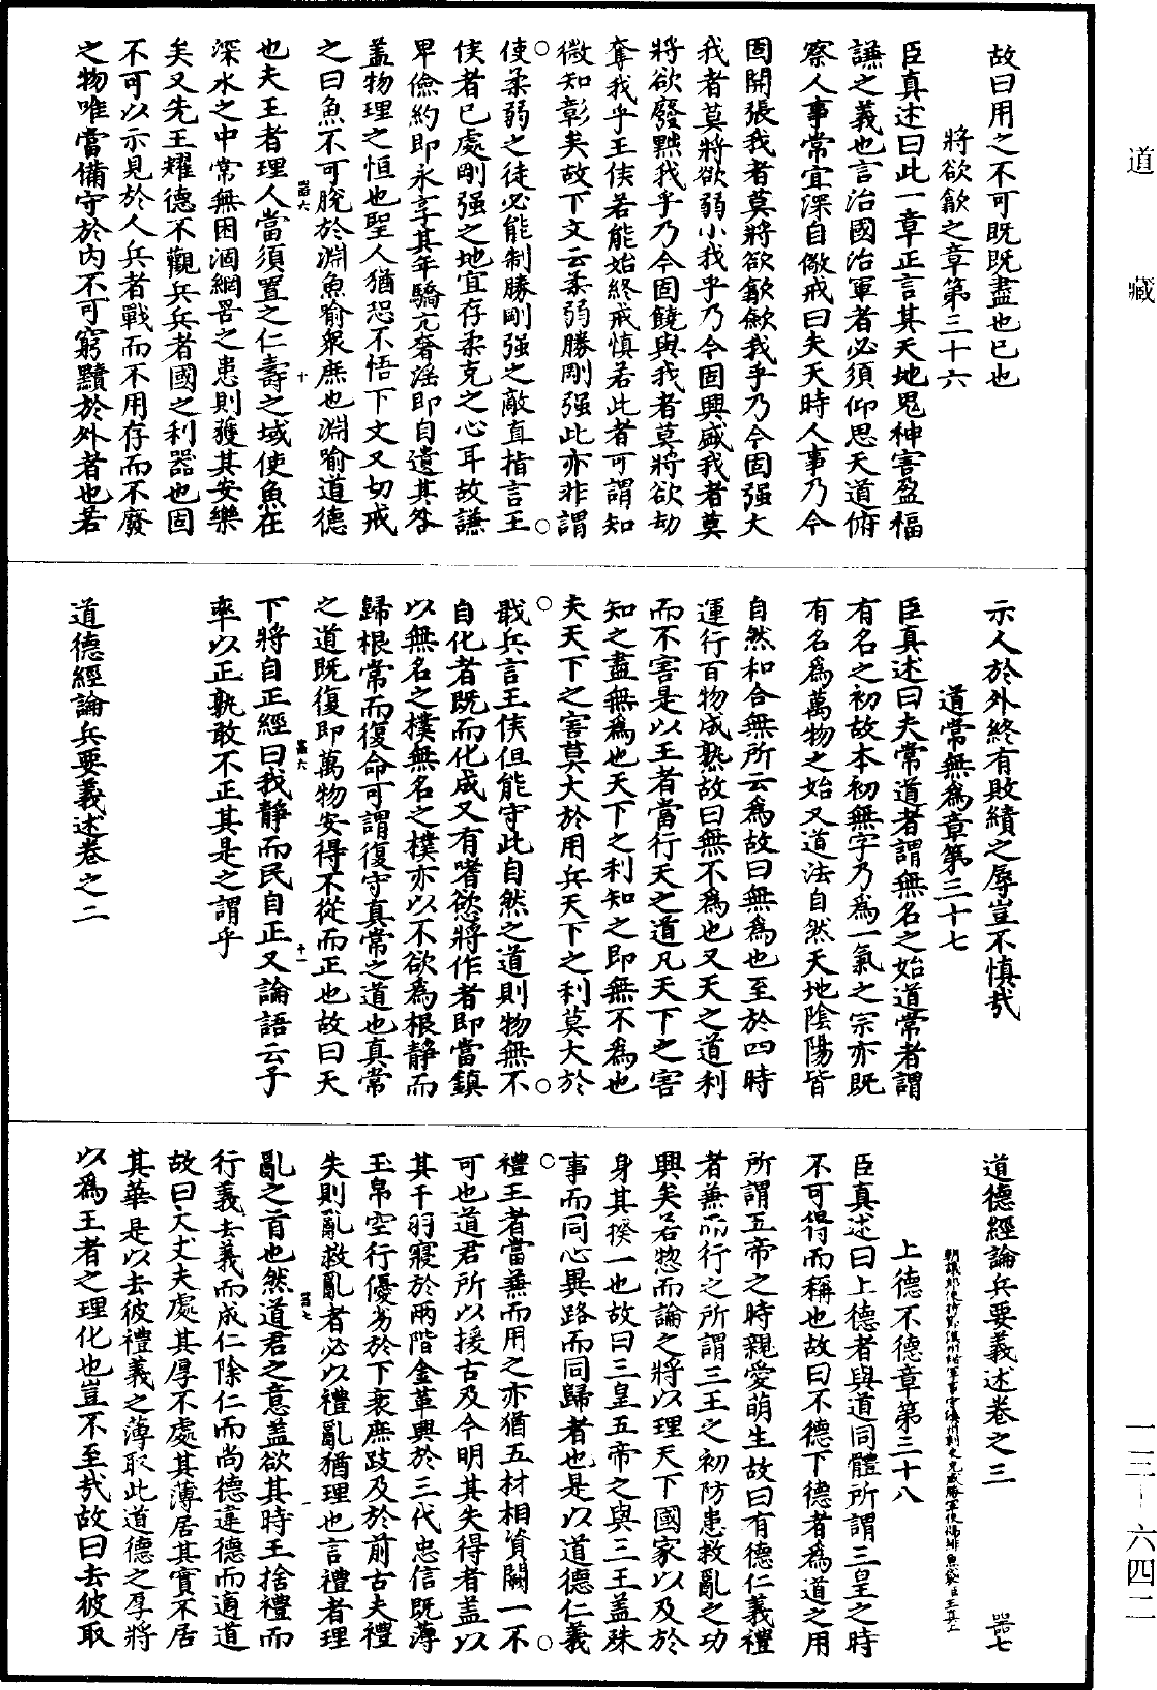 道藏
故曰用之不可既既盡也已也
將欲歙之章第三十六
臣真述曰此一章正言其天地鬼神害盈福
謙之義也言治國治軍者必須仰思天道俯
察人事常宜深自儆戒曰夫天時人事乃今
固開張我者莫將欲歙歛我乎乃今固强大
我者莫將欲弱小我乎乃今固興盛我者莫
將欲廢黜我乎乃今固饒與我者莫將欲劫
奪我乎王侯若能始終戒慎若此者可謂知
微知彰矣故下文云柔弱勝剛强此亦非謂
使柔弱之徒必能制勝剛强之敵直指言王
侯者已處剛强之地宜存柔克之心耳故謙
卑儉約即永享其年驕亢奢淫即自遺其咎
盖物理之恒也聖人猶恐不悟下文又切戒
之曰魚不可脫於淵魚喻衆庶也淵喻道德
器六 十
也夫王者理人當須置之仁壽之域使魚在
深水之中常無困涸網罟之患則獲其安樂
矣又先王耀德不觀兵兵者國之利器也固
不可以示見於人兵者戰而不用存而不廢
之物唯當備守於內不可窮黷於外者也若
示人於外終有敗績之辱豈不慎哉
道常無為章第三十七
臣真述曰夫常道者謂無名之始道常者謂
有名之初故本初無字乃為一氣之宗亦既
有名為萬物之始又道法自然天地陰陽皆
自然和合無所云為故曰無為也至於四時
運行百物成熟故曰無不為也又天之道利
而不害是以王者當行天之道凡天下之害
知之盡無為也天下之利知之即無不為也
夫天下之害莫大於用兵天下之利莫大於
戢兵言王侯但能守此自然之道則物無不
自化者既而化成又有嗜慾將作者即當鎮
以無名之樸無名之樸亦以不欲為根靜而
歸根常而復命可謂復守真常之道也真常
之道既復即萬物安得不從而正也故曰天
器六 十一
下將自正經曰我靜而民自正又論語云子
率以正孰敢不正其是之謂乎
道德經論兵要義述卷之二
道德經論兵要義述卷之三 器七
上德不德章第三十八
臣真述曰上德者與道同體所謂三皇之時
不可得而稱也故曰不德下德者為道之用
所謂五帝之時親愛萌生故曰有德仁義禮
者兼而行之所謂三王之初防患救亂之功
興矣若惣而論之將以理天下國家以及於
身其揆一也故曰三皇五帝之與三王盖殊
事而同心異路而同歸者也是以道德仁義
禮王者當兼而用之亦猶五材相資闕一不
可也道君所以援古及今明其失得者盖以
其干羽寢於兩階金革興於三代忠信既薄
玉帛空行優劣於下衰庶跂及於前古夫禮
失則亂救亂者必以禮亂猶理也言禮者理
器七 一
亂之首也然道君之意盖欲其時王捨禮而
行義去義而成仁除仁而尚德違德而適道
故曰大丈夫處其厚不處其薄居其實不居
其華是以去彼禮義之薄取此道德之厚將
以為王者之理化也豈不至哉故曰去彼取
一三—六四二